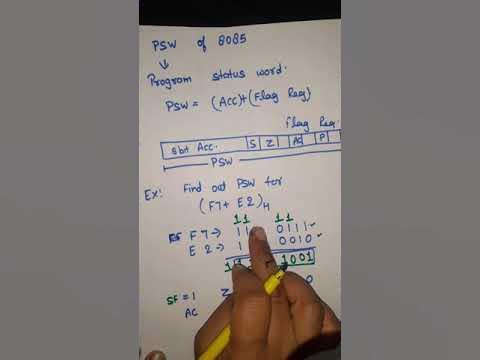 PSW of 8085
↓
Program status word.
PSW = (ACC)+(Flag Reg)
Flag Reg.
8bit Acc. S Z AC P
PSW
Ex: Find out PSW for
(F7+ E2)H
1 1 1 1
F7→ 1 1 0111
E2→ 1 0010
1 1 1001
SF = 1 Z 0
AC